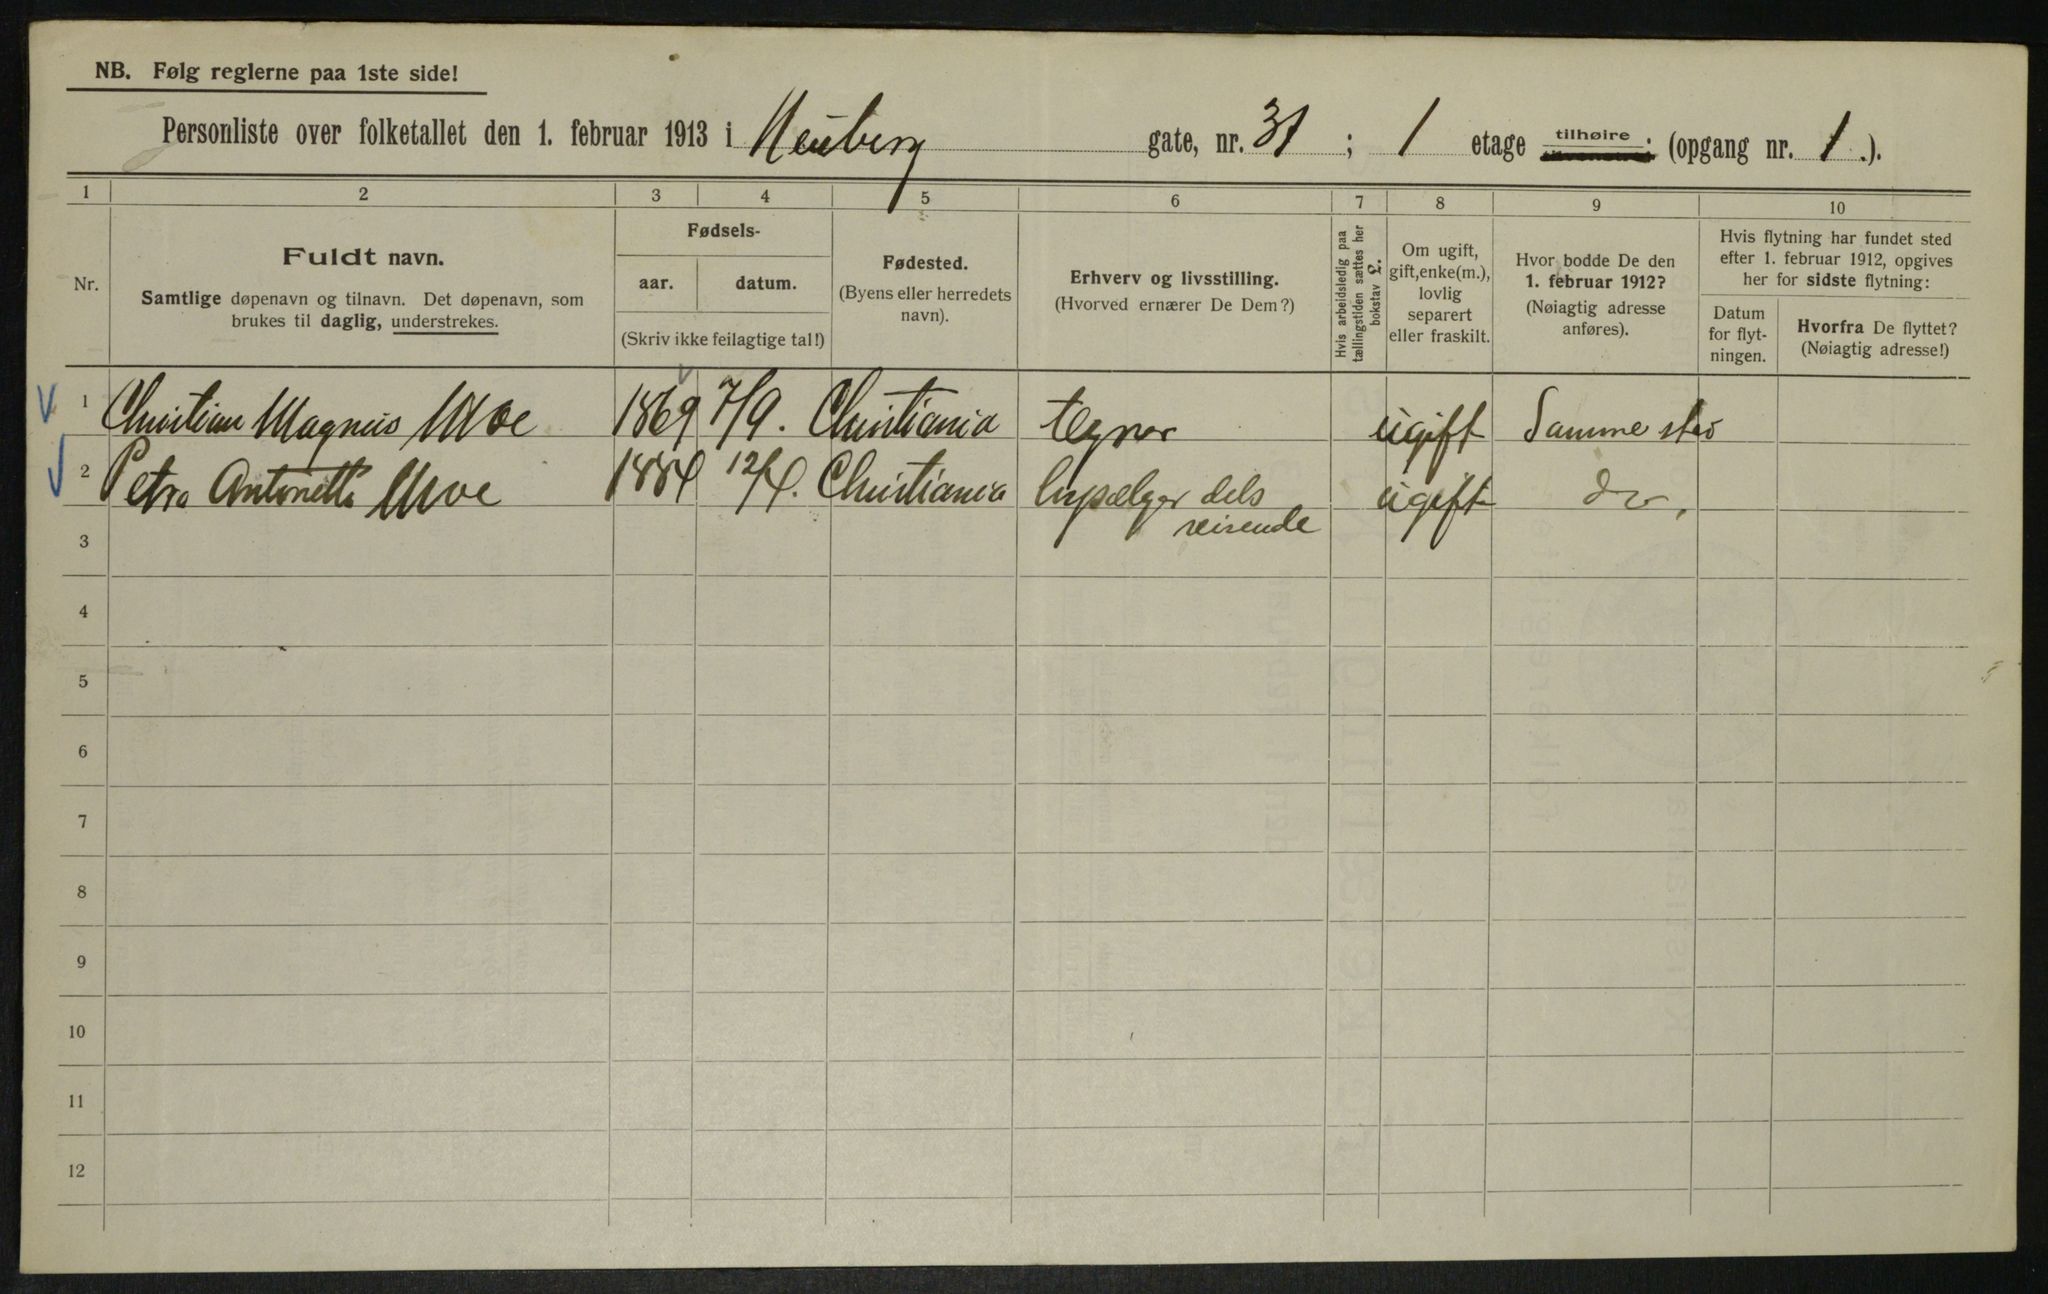 NB. Følg reglerne paa 1ste side!
Personliste over folketallet den 1. februar 1913 i Neuberg gate, nr. 31 ; 1 etage tilhøire (opgang nr. 1.).
1 2 3 4 5 6 7 8 9 10
Nr.
Fuldt navn.
Samtlige døpenavn og tilnavn. Det døpenavn, som
brukes til daglig, understrekes.
Fødsels-
aar. datum.
(Skriv ikke feilagtige tal!)
Fødested.
(Byens eller herredets
navn).
Erhverv og livsstilling.
(Hvorved ernærer De Dem?)
Hvis arbeidsledig paa
tællingstiden sættes her
bokstav L.
Om ugift,
gift, enke(m.),
lovlig
separert
eller fraskilt.
Hvor bodde De den
1. februar 1912?
(Nøiagtig adresse
anføres).
Hvis flytning har fundet sted
efter 1. februar 1912, opgives
her for sidste flytning:
Datum
for flyt-
ningen.
Hvorfra De flyttet?
(Nøiagtig adresse!)
1 Christian Magnus Moe 1869 7/9. Christiania tegner ugift Samme sted
2 Petra Antonette Moe 1884 12/4. Christiania dels ugift do.
reisende
3
4
5
6
7
8
9
10
11
12